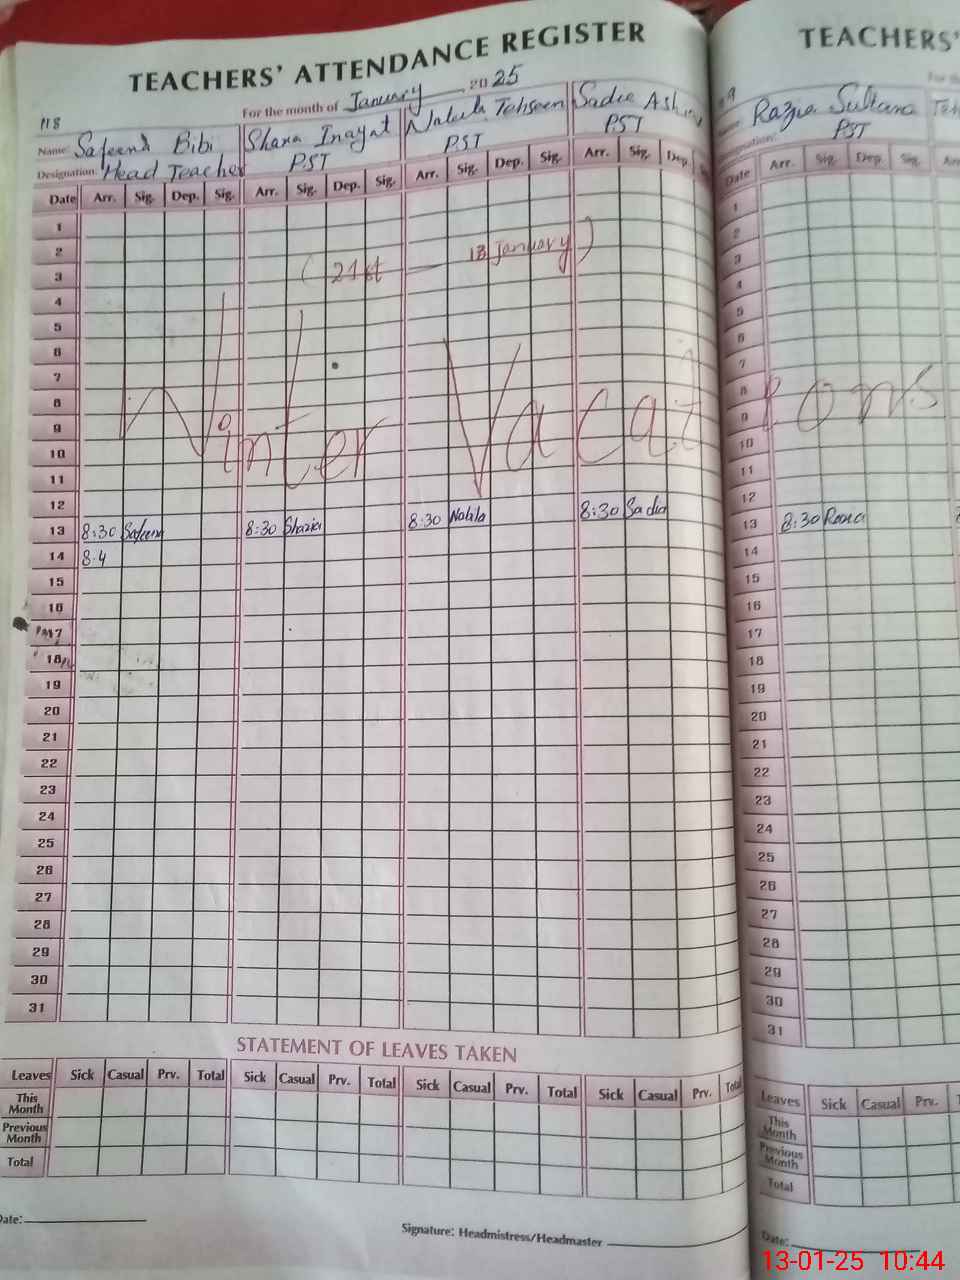 TEACHERS' ATTENDANCE REGISTER
For the month of January 2025
118
Name: Safeena Bibi Inayat Tahseen Sadia
Designation: Head Teacher PST PST PST
Date Arr. Sig. Dep. Sig. Arr. Sig. Dep. Sig. Arr. Sig. Dep. Sig. Arr. Sig. Dep.
1
2
3
(21st — 13 January)
4
5
6
7
8
9
Winter Vacations
10
11
12
13 8:30 8:30 Shazia 8:30 8:30 Sadia
14 8:4
15
16
17
18
19
20
21
22
23
24
25
26
27
28
29
30
31
STATEMENT OF LEAVES TAKEN
Leaves Sick Casual Prv. Total Sick Casual Prv. Total Sick Casual Prv. Total Sick Casual Prv. Total
This Month
Previous Month
Total
Date:
Signature: Headmistress/Headmaster
TEACHERS'
Name: Razia Sultana
Designation: PST
Date Arr. Sig. Dep. Sig.
1
2
3
4
5
6
7
8
9
10
11
12
13 8:30
14
15
16
17
18
19
20
21
22
23
24
25
26
27
28
29
30
31
Leaves Sick Casual Prv.
This Month
Previous Month
Total
Date:
13-01-25 10:44